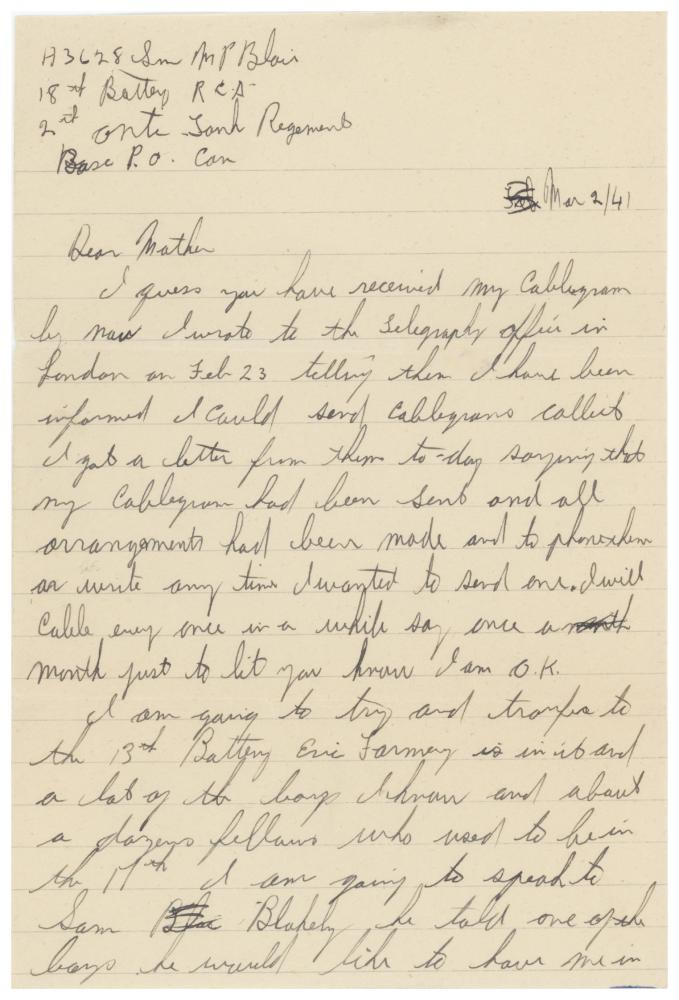 H3628 Gnr M P Blair
18th Battery R C A
2th Ont. Tank Regement
Base P.O. Can
Mar 2/41
Dear Mother
I guess you have received my Cablegram
by now I wrote to the Telegraphy office in
London on Feb 23 telling them I have been
informed I Could send Cablegrams collect
I got a letter from them to-day saying that
my Cablegram had been sent and all
arrangements had been made and to phone them
or write any time I wanted to send one. I will
Cable every once in a while say once a month
month just to let you know I am O.K.
I am going to try and transfer to
the 13th Battery Eric Farmery is in it and
a lot of the boys I know and about
a dozens fellows who used to be in
the 17th I am going to speak to
Sam Blakely he told one of the
boys he would like to have me in